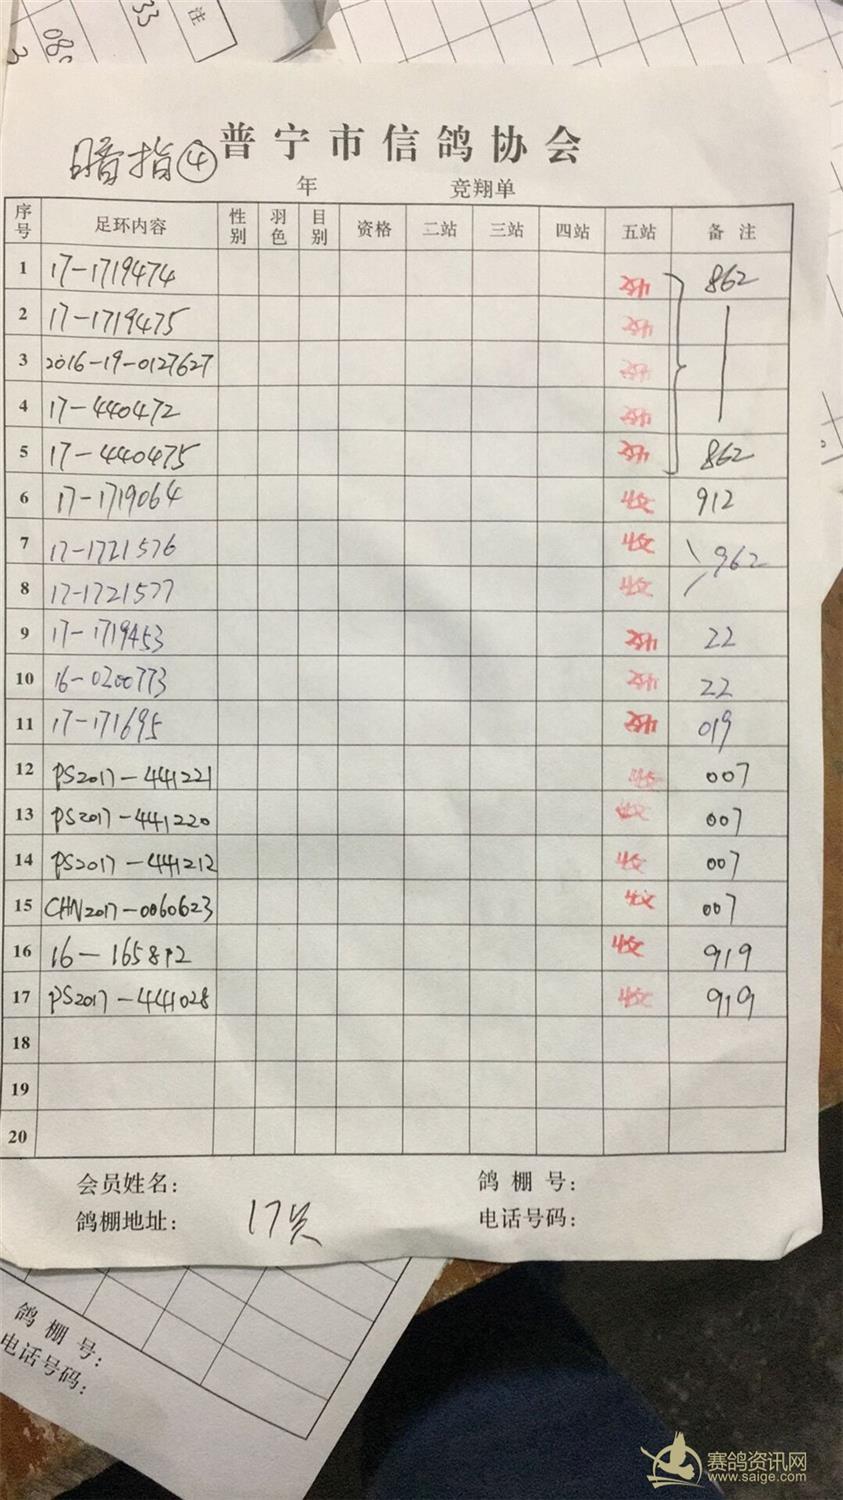 33
注
08
3
暗指④ 普宁市信鸽协会
年 竞翔单
序号 足环内容 性别 羽色 目别 资格 二站 三站 四站 五站 备注
1 17-1719474 收 862
2 17-1719475 收
3 2016-19-0127627 收
4 17-440472 收
5 17-440475 收 862
6 17-1719064 收 912
7 17-1721576 收 962
8 17-1721577 收
9 17-1719453 收 22
10 16-0200773 收 22
11 17-171695 收 019
12 PS2017-441221 收 007
13 PS2017-441220 收 007
14 PS2017-441212 收 007
15 CHN2017-0060623 收 007
16 16-165812 收 919
17 PS2017-441028 收 919
18
19
20
会员姓名: 鸽棚号:
鸽棚地址: 17 电话号码:
鸽棚号:
电话号码:
赛鸽资讯网
www.saige.com